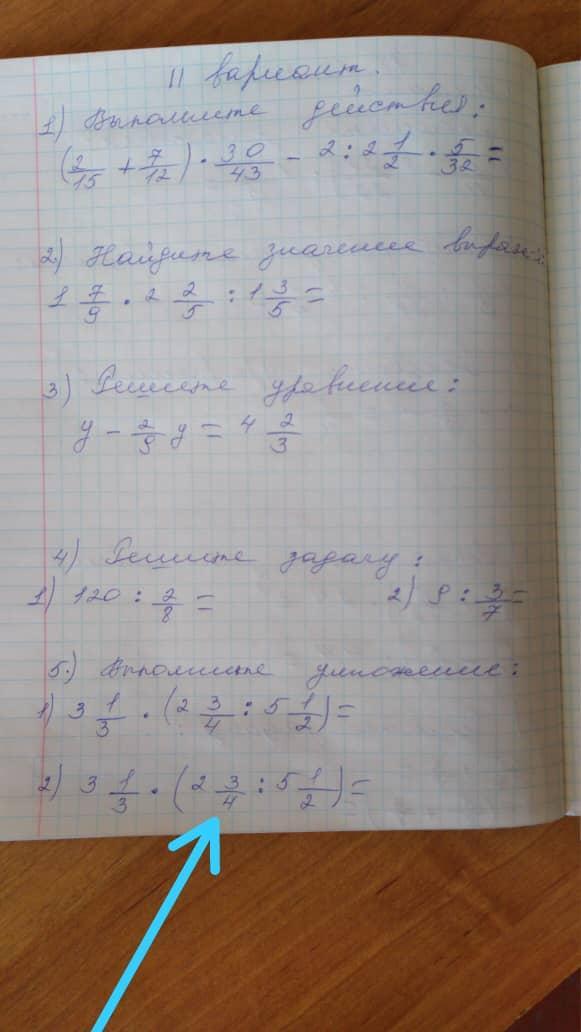 II вариант.
1) Выполните действия:
(2/15 + 7/12) · 30/43 - 2 : 2 1/2 · 5/32 =
2.) Найдите значение выраж-я:
1 7/9 · 2 2/5 : 1 3/5 =
3) Решите уравнение:
y - 2/9 y = 4 2/3
4) Решите задачу:
1) 120 : 2/8 = 2) 9 : 3/7 =
5.) Выполните умножение:
1) 3 1/3 · (2 3/4 : 5 1/2) =
2) 3 1/3 · (2 3/4 : 5 1/2) =